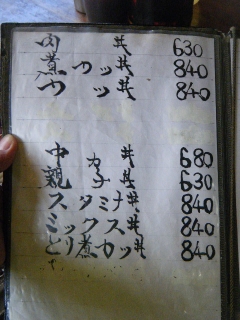 肉丼 630
煮カツ丼 840
カツ丼 840
中カ丼 680
親子丼 630
スタミナ丼 840
ミックス丼 840
とり煮カツ丼 840